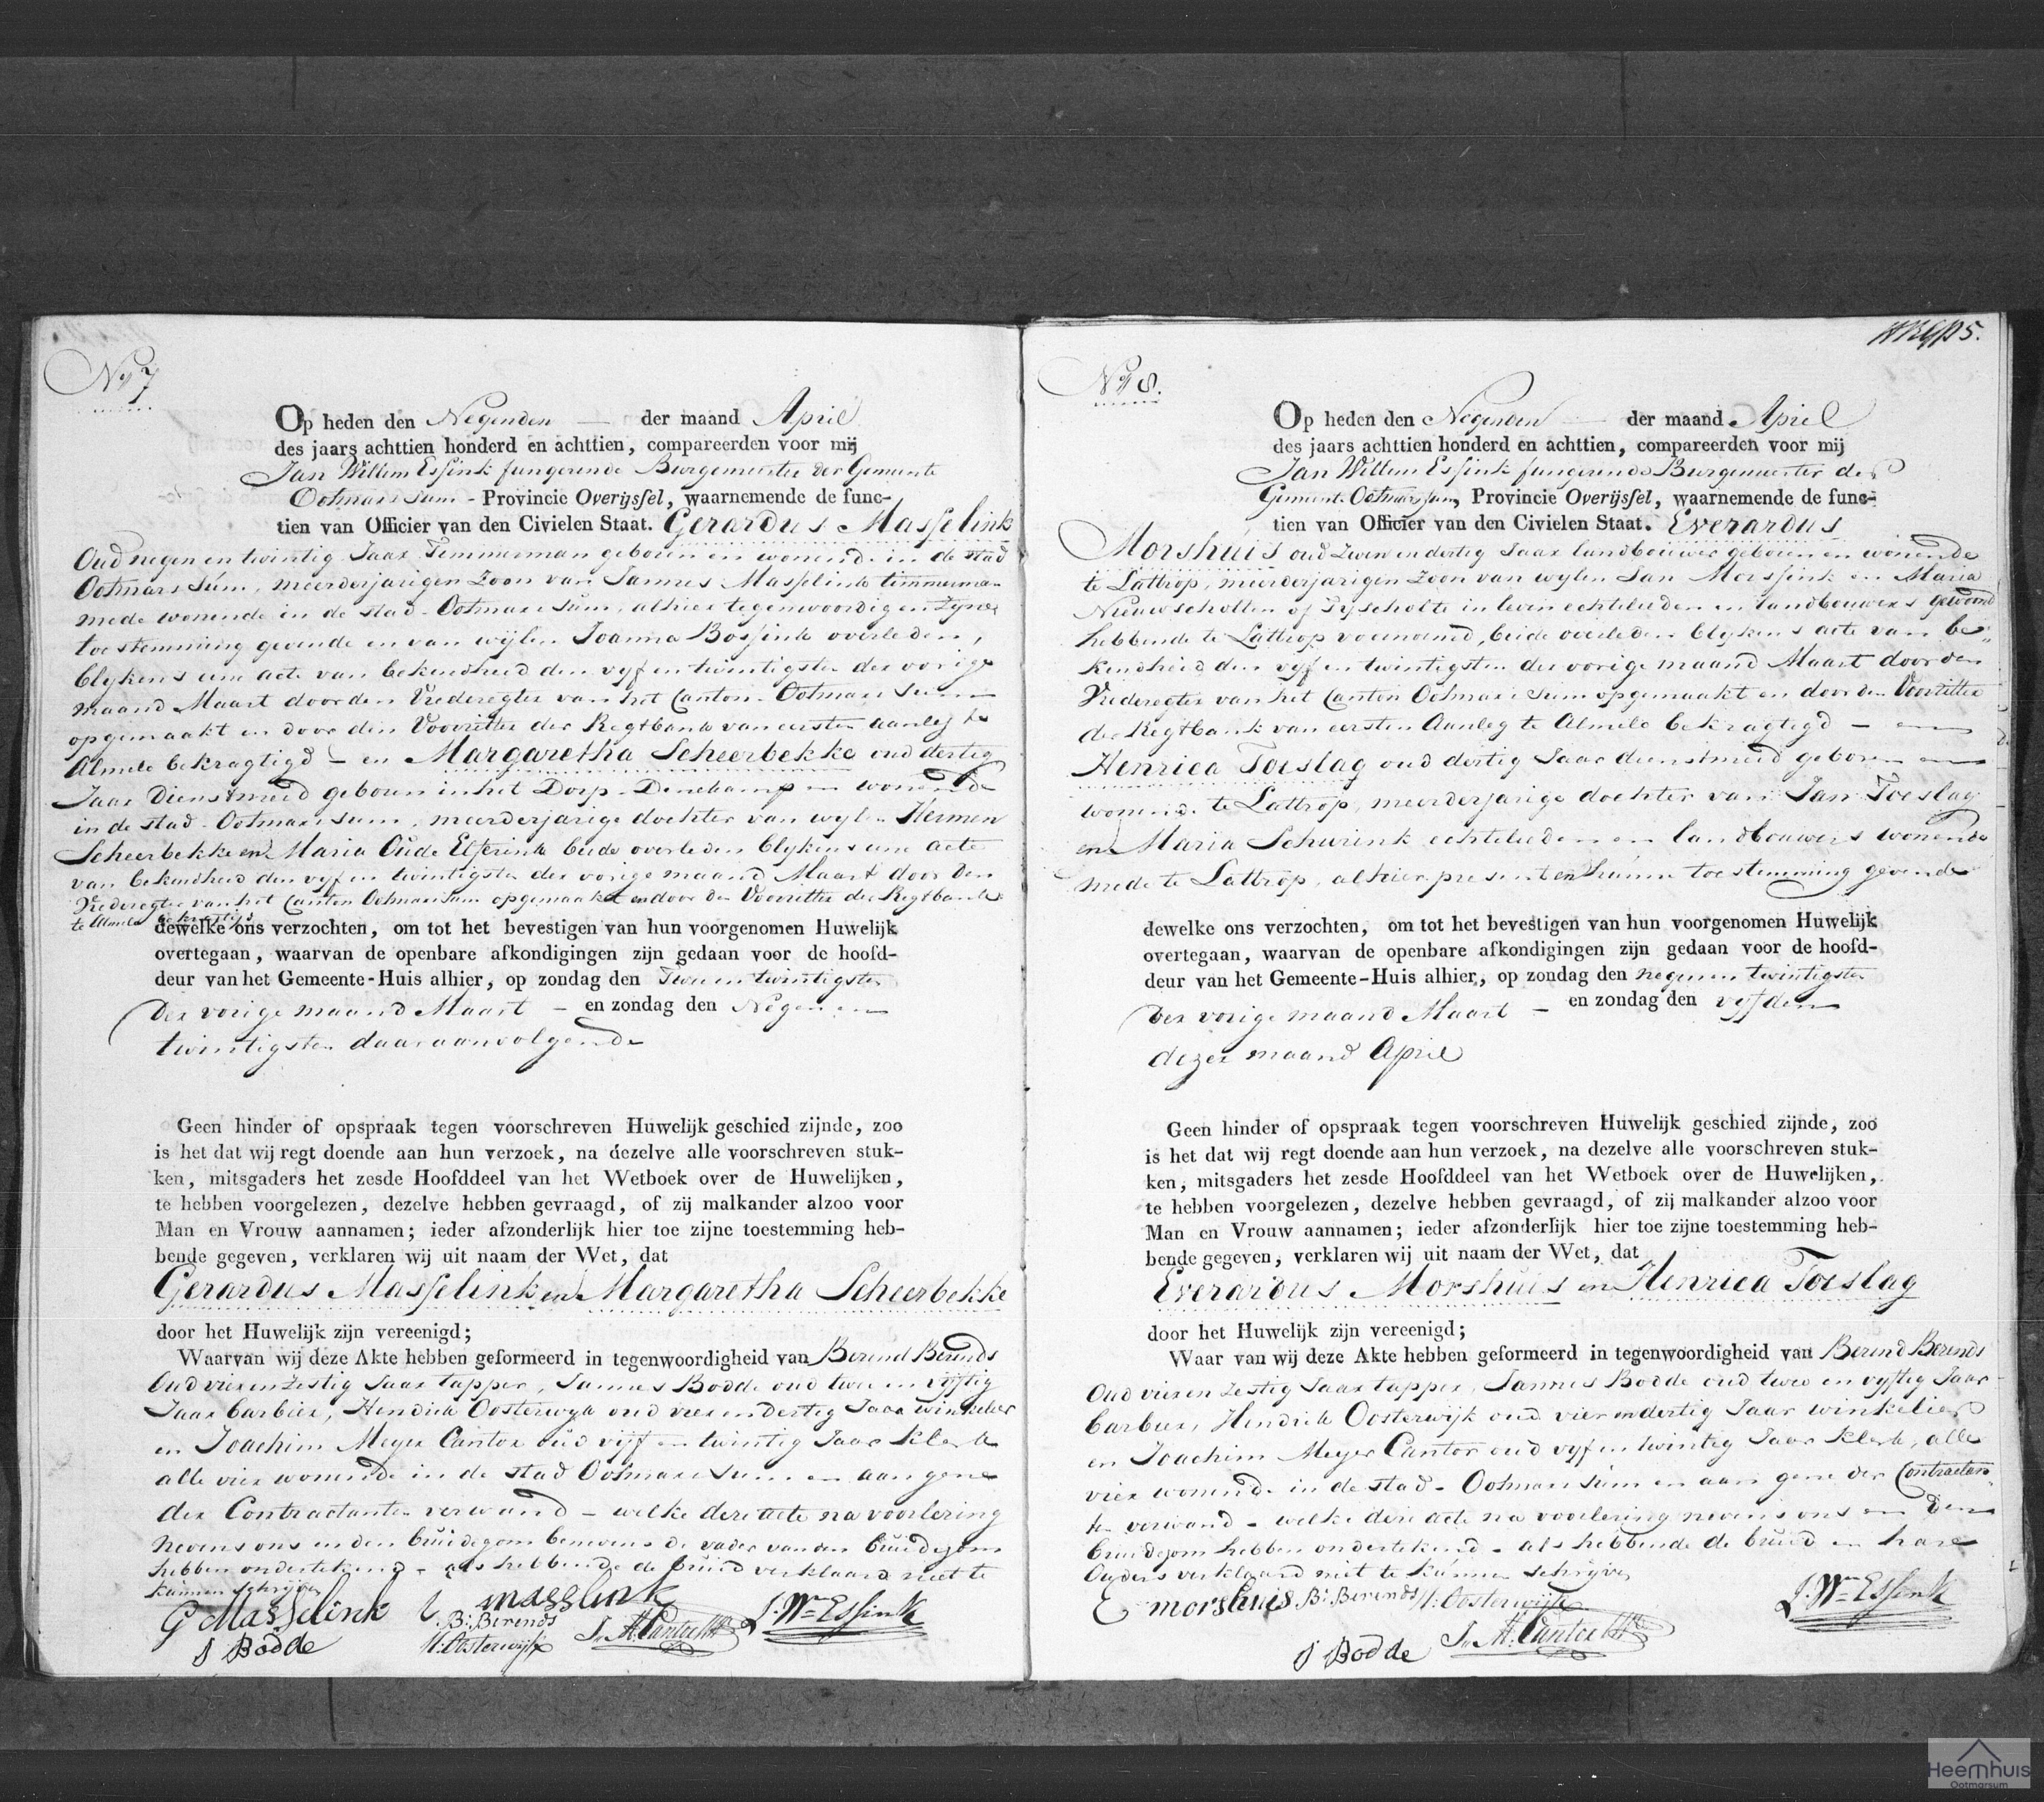 No 7
Op heden den Negenden — der maand April
des jaars achttien honderd en achttien, compareerden voor mij
Jan Willem Essink fungerende Burgemeester der Gemeente
Ootmarssum - Provincie Overijssel, waarnemende de func-
tien van Officier van den Civielen Staat. Gerardus Masselink
Oud negen en twintig Jaar Timmerman geboren en wonende in de stad
Ootmarssum, meerderjarigen Zoon van Jannes Masselink timmerman
mede wonende in de stad Ootmarssum, alhier tegenwoordig en Zyne
toestemming gevende en van wijlen Joanna Bossink overleden,
blykens eene acte van bekendheid den vyf en twintigsten der vorige
maand Maart door den Vrederegter van het Canton Ootmarssum
opgemaakt en door den Voorzitter der Regtbank van eersten aanleg te
Almelo bekragtigd - en Margaretha Scheerbekke oud dertig
Jaar Dienstmeid geboren in het Dorp Denekamp en wonende
in de stad Ootmarssum, meerderjarige dochter van wylen Hermen
Scheerbekke en Maria Oude Elferink beide overleden blykens eene acte
van bekendheid den vyf en twintigsten der vorige maand Maart door den
Vrederegter van het Canton Ootmarssum opgemaakt en door den Voorzitter der Regtbank
te Almelo bekragtigd
dewelke ons verzochten, om tot het bevestigen van hun voorgenomen Huwelijk
overtegaan, waarvan de openbare afkondigingen zijn gedaan voor de hoofd-
deur van het Gemeente-Huis alhier, op zondag den Twee en twintigsten
der vorige maand Maart - en zondag den Negen en
twintigsten daaraanvolgende
Geen hinder of opspraak tegen voorschreven Huwelijk geschied zijnde, zoo
is het dat wij regt doende aan hun verzoek, na dezelve alle voorschreven stuk-
ken, mitsgaders het zesde Hoofddeel van het Wetboek over de Huwelijken,
te hebben voorgelezen, dezelve hebben gevraagd, of zij malkander alzoo voor
Man en Vrouw aannamen; ieder afzonderlijk hier toe zijne toestemming heb-
bende gegeven, verklaren wij uit naam der Wet, dat
Gerardus Masselink en Margaretha Scheerbekke
door het Huwelijk zijn vereenigd;
Waarvan wij deze Akte hebben geformeerd in tegenwoordigheid van Berend Berends
Oud vier en zestig Jaar tapper, Jannes Bodde oud twee en vyftig
Jaar barbier, Hendrik Oosterwyk oud vier en dertig Jaar winkelier
en Joachim Meyer Cantor oud vijf en twintig Jaar klerk
alle vier wonende in de stad Ootmarssum en aan gene
der Contractanten verwand - welke deze acte na voorlezing
nevens ons en den bruidegom benevens de vader van den bruidegom
hebben ondertekend - als hebbende de bruid verklaard niet te
kunnen schrijven
G Masselink J masslink
B: Berends
H: Oosterwijk J. M. Cantor J. Wm Essink
J Bodde
No 8.
5.
Op heden den Negenden — der maand April
des jaars achttien honderd en achttien, compareerden voor mij
Jan Willem Essink fungerende Burgemeester der
Gemeente Ootmarssum, Provincie Overijssel, waarnemende de func-
tien van Officier van den Civielen Staat. Everardus
Morshuis oud Twee en dertig Jaar landbouwer geboren en wonende
te Lattrop, meerderjarigen Zoon van wylen Jan Morssink en Maria
Nieuwscholten of Tyscholte in leven echtelieden en landbouwers gewoond
hebbende te Lattrop voornoemd, beide overleden blykens acte van be-
kendheid den vyf en twintigsten der vorige maand Maart door den
Vrederegter van het Canton Ootmarssum opgemaakt en door den Voorzitter
der Regtbank van eersten Aanleg te Almelo bekragtigd - en
Henrica Toeslag oud dertig Jaar dienstmeid geboren en
wonende te Lattrop, meerderjarige dochter van Jan Toeslag
en Maria Schurink echtelieden en landbouwers wonende
mede te Lattrop, alhier present en hunne toestemming gevende
dewelke ons verzochten, om tot het bevestigen van hun voorgenomen Huwelijk
overtegaan, waarvan de openbare afkondigingen zijn gedaan voor de hoofd-
deur van het Gemeente-Huis alhier, op zondag den negen en twintigsten
der vorige maand Maart - en zondag den vyfden
dezer maand April
Geen hinder of opspraak tegen voorschreven Huwelijk geschied zijnde, zoo
is het dat wij regt doende aan hun verzoek, na dezelve alle voorschreven stuk-
ken, mitsgaders het zesde Hoofddeel van het Wetboek over de Huwelijken,
te hebben voorgelezen, dezelve hebben gevraagd, of zij malkander alzoo voor
Man en Vrouw aannamen; ieder afzonderlijk hier toe zijne toestemming heb-
bende gegeven, verklaren wij uit naam der Wet, dat
Everardus Morshuis en Henrica Toeslag
door het Huwelijk zijn vereenigd;
Waar van wij deze Akte hebben geformeerd in tegenwoordigheid van Berend Berends
Oud vier en zestig Jaar tapper, Jannes Bodde oud twee en vyftig Jaar
barbier, Hendrik Oosterwijk oud vier en dertig Jaar winkelier
en Joachim Meyer Cantor oud vyf en twintig Jaar klerk, alle
vier wonende in de stad Ootmarssum en aan gene der Contractan-
ten verwand - welke deze acte na voorlezing nevens ons en den
bruidegom hebben ondertekend - als hebbende de bruid en hare
Ouders verklaard niet te kunnen schrijven
E morshuis B: Berends H: Oosterwijk J. Wm Essink
J Bodde J. M. Cantor
Heemhuis
Ootmarsum